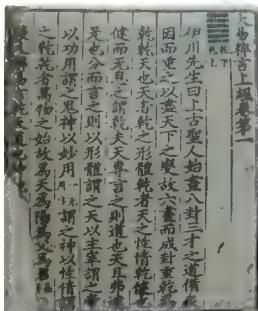 大易粹言上經卷第一
乾下
乾上
伊川先生曰上古聖人始畫八卦三才之道備
因而重之以盡天下之變故六畫而成卦重乾為
乾乾天也天者乾之形體乾者天之性情乾健
健而无息之謂乾夫天專言之則道也天且弗違
是也分而言之則以形體謂之天以主宰謂之
以功用謂之鬼神以妙用謂之神以性情
之乾乾者萬物之始故為天為陽為父為君